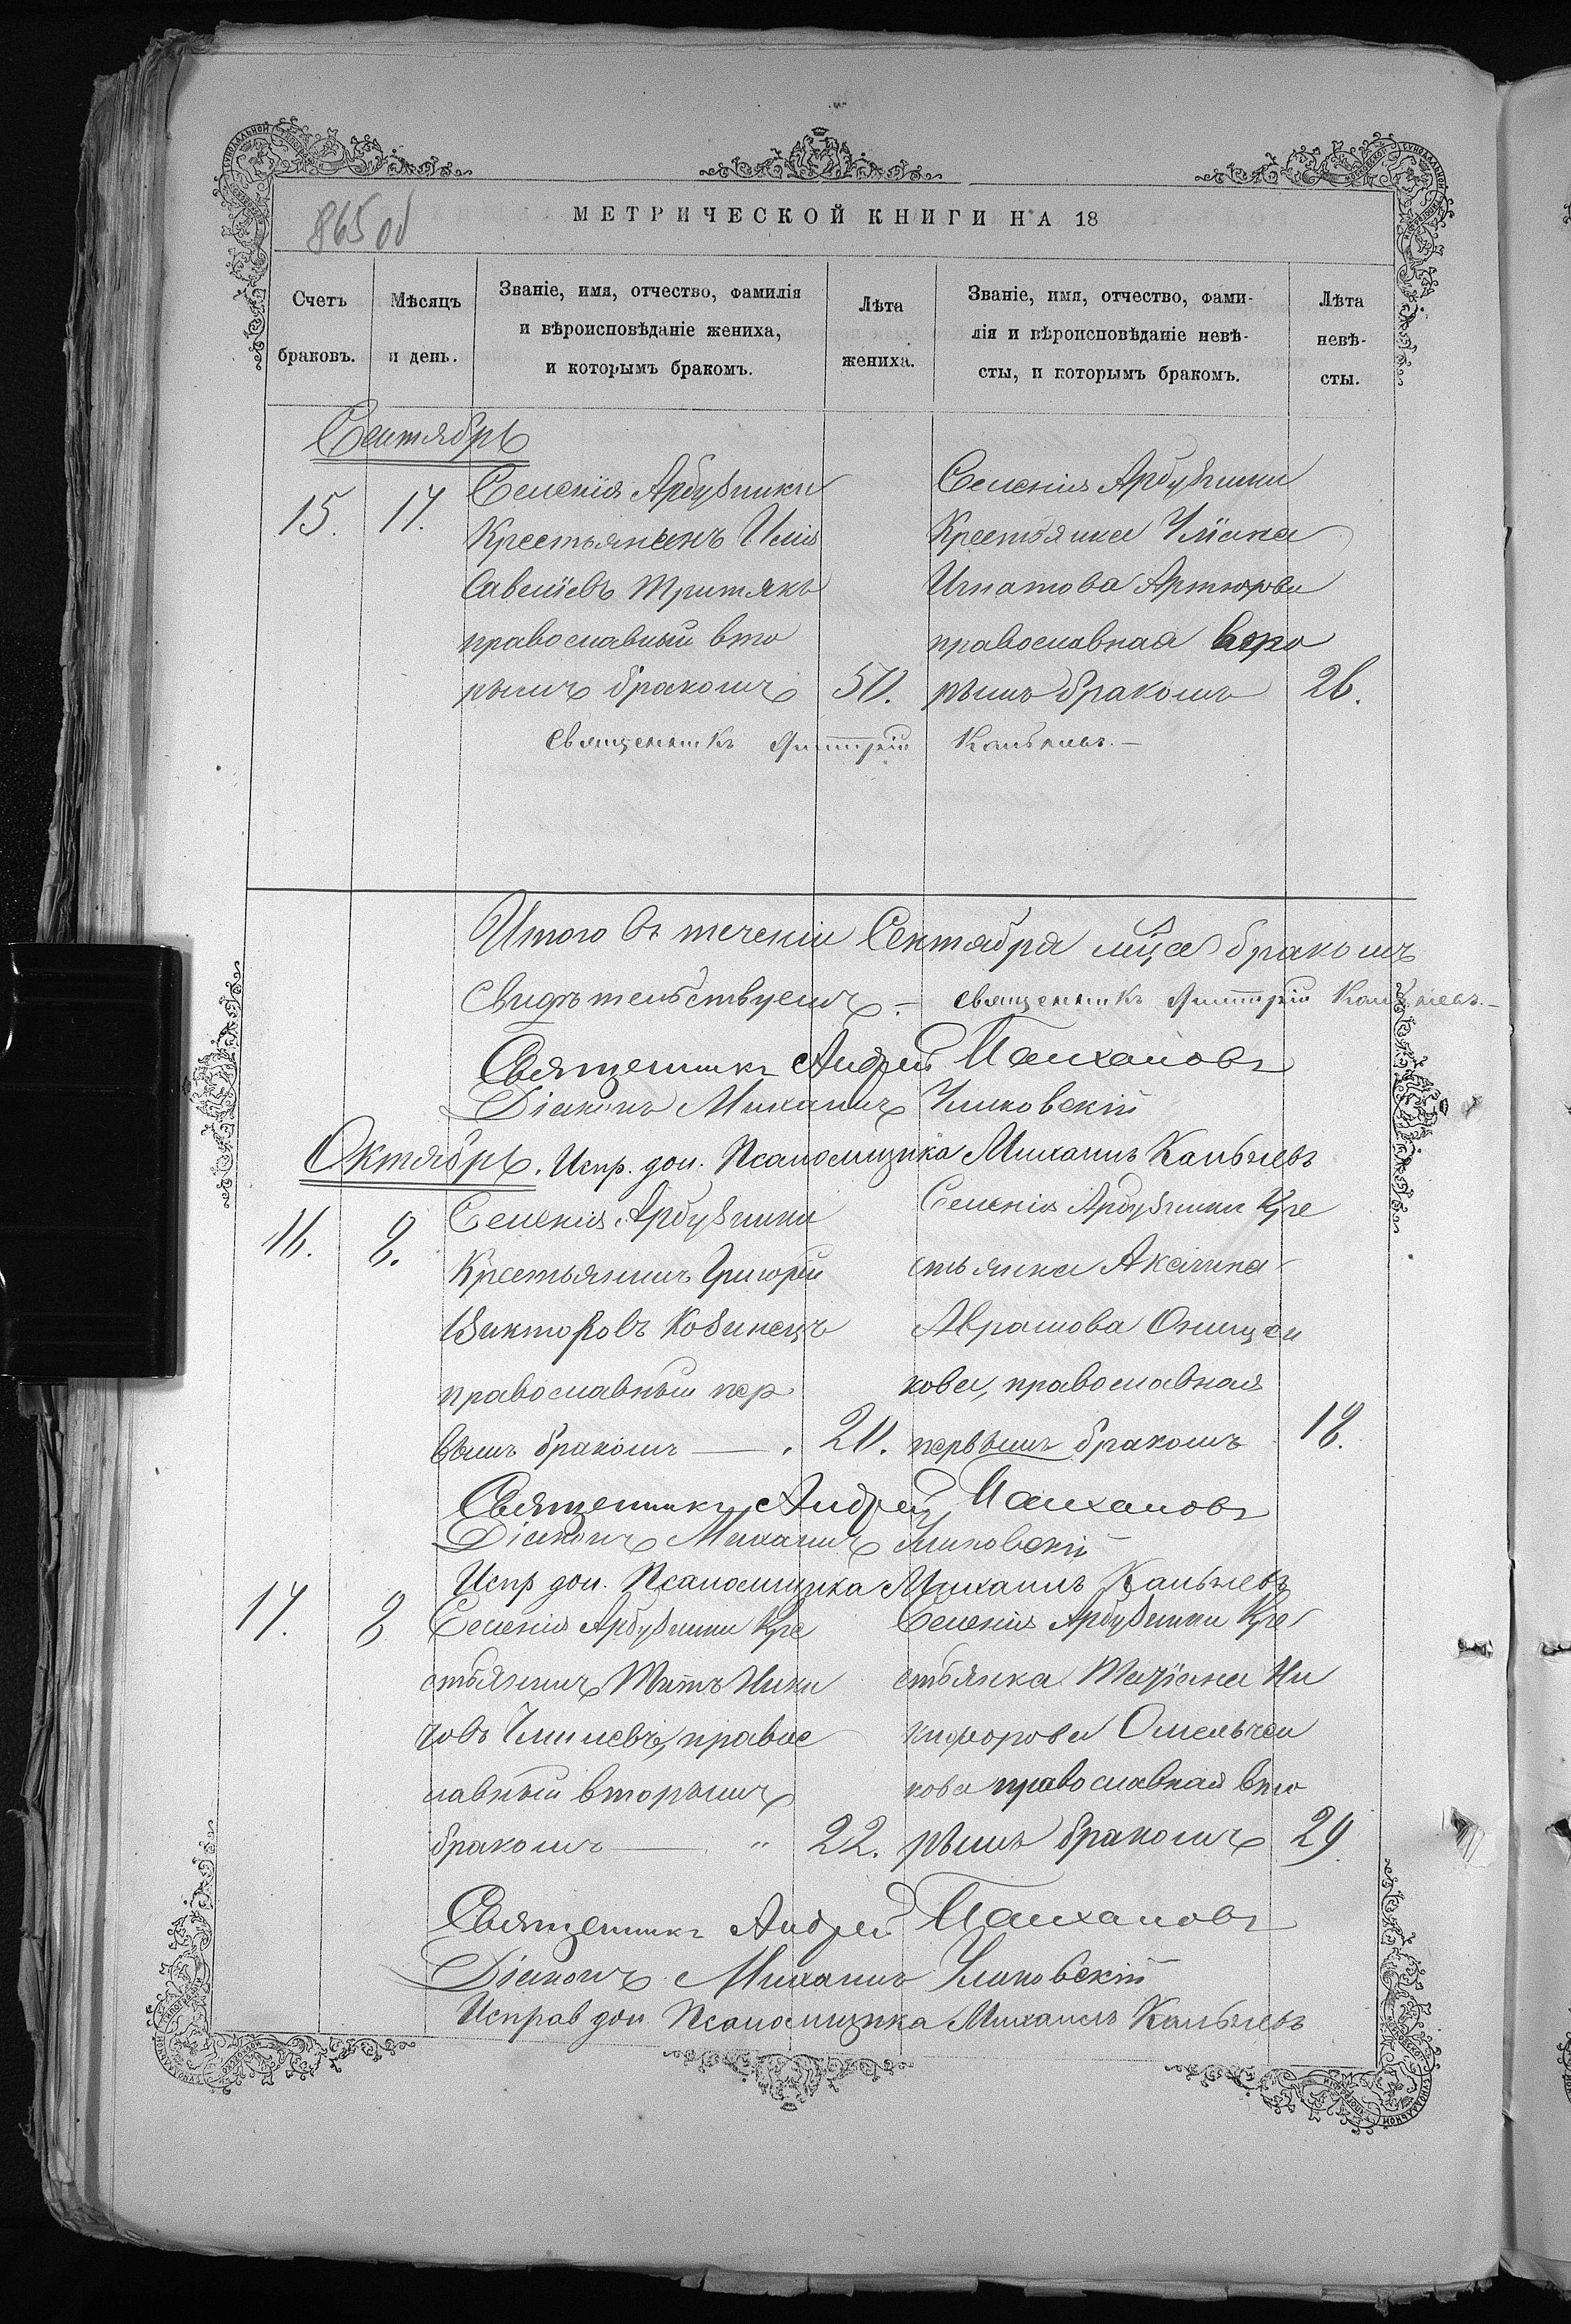 865 об
МЕТРИЧЕСКОЙ КНИГИ НА 18
Счетъ браковъ.
Мѣсяцъ и день.
Званіе, имя, отчество, фамилія
и вѣроисповѣданіе жениха,
и которымъ бракомъ.
Лѣта жениха.
Званіе, имя, отчество, фами-
лія и вѣроисповѣданіе невѣ-
сты, и которымъ бракомъ.
Лѣта невѣ-
сты.
Сентябрь
15. 17.
Селенія Арбузинки
Крестьянинъ Илія
Савеліевъ Третякъ
православный вто
рымъ бракомъ 50.
Селенія Арбузинки
Крестьянка Уліана
Игнатова
православная вто
рымъ бракомъ 26.
Священникъ Димитрій Кальневъ.
Итого въ теченіи Сентября мца бракомъ
Свидѣтельствуемъ. Священникъ Димитрій Кальневъ.
Священникъ Андрей
Діаконъ Михаилъ
Октябрь. Испр. дол. Псаломщика Михаилъ Кальневъ
16. 8.
Селенія Арбузинки
Крестьянинъ Григорій
Викторовъ Кобинецъ
православный пер
вымъ бракомъ 20.
Селенія Арбузинки Кре
стьянка Аксинія
Аврамова Онищен
кова, православная
первымъ бракомъ 18.
Священникъ Андрей
Діаконъ Михаилъ
Испр дол. Псаломщика Михаилъ Кальневъ
17. 8
Селенія Арбузинки Кре
стьянинъ Титъ Ники
правос
лавный вторымъ
бракомъ 22.
Селенія Арбузинки Кре
стьянка Татіана Ни
кифорова Омельчен
кова православная вто
рымъ бракомъ 29
Священникъ Андрей
Діаконъ Михаилъ
Исправ дол Псаломщика Михаилъ Кальневъ